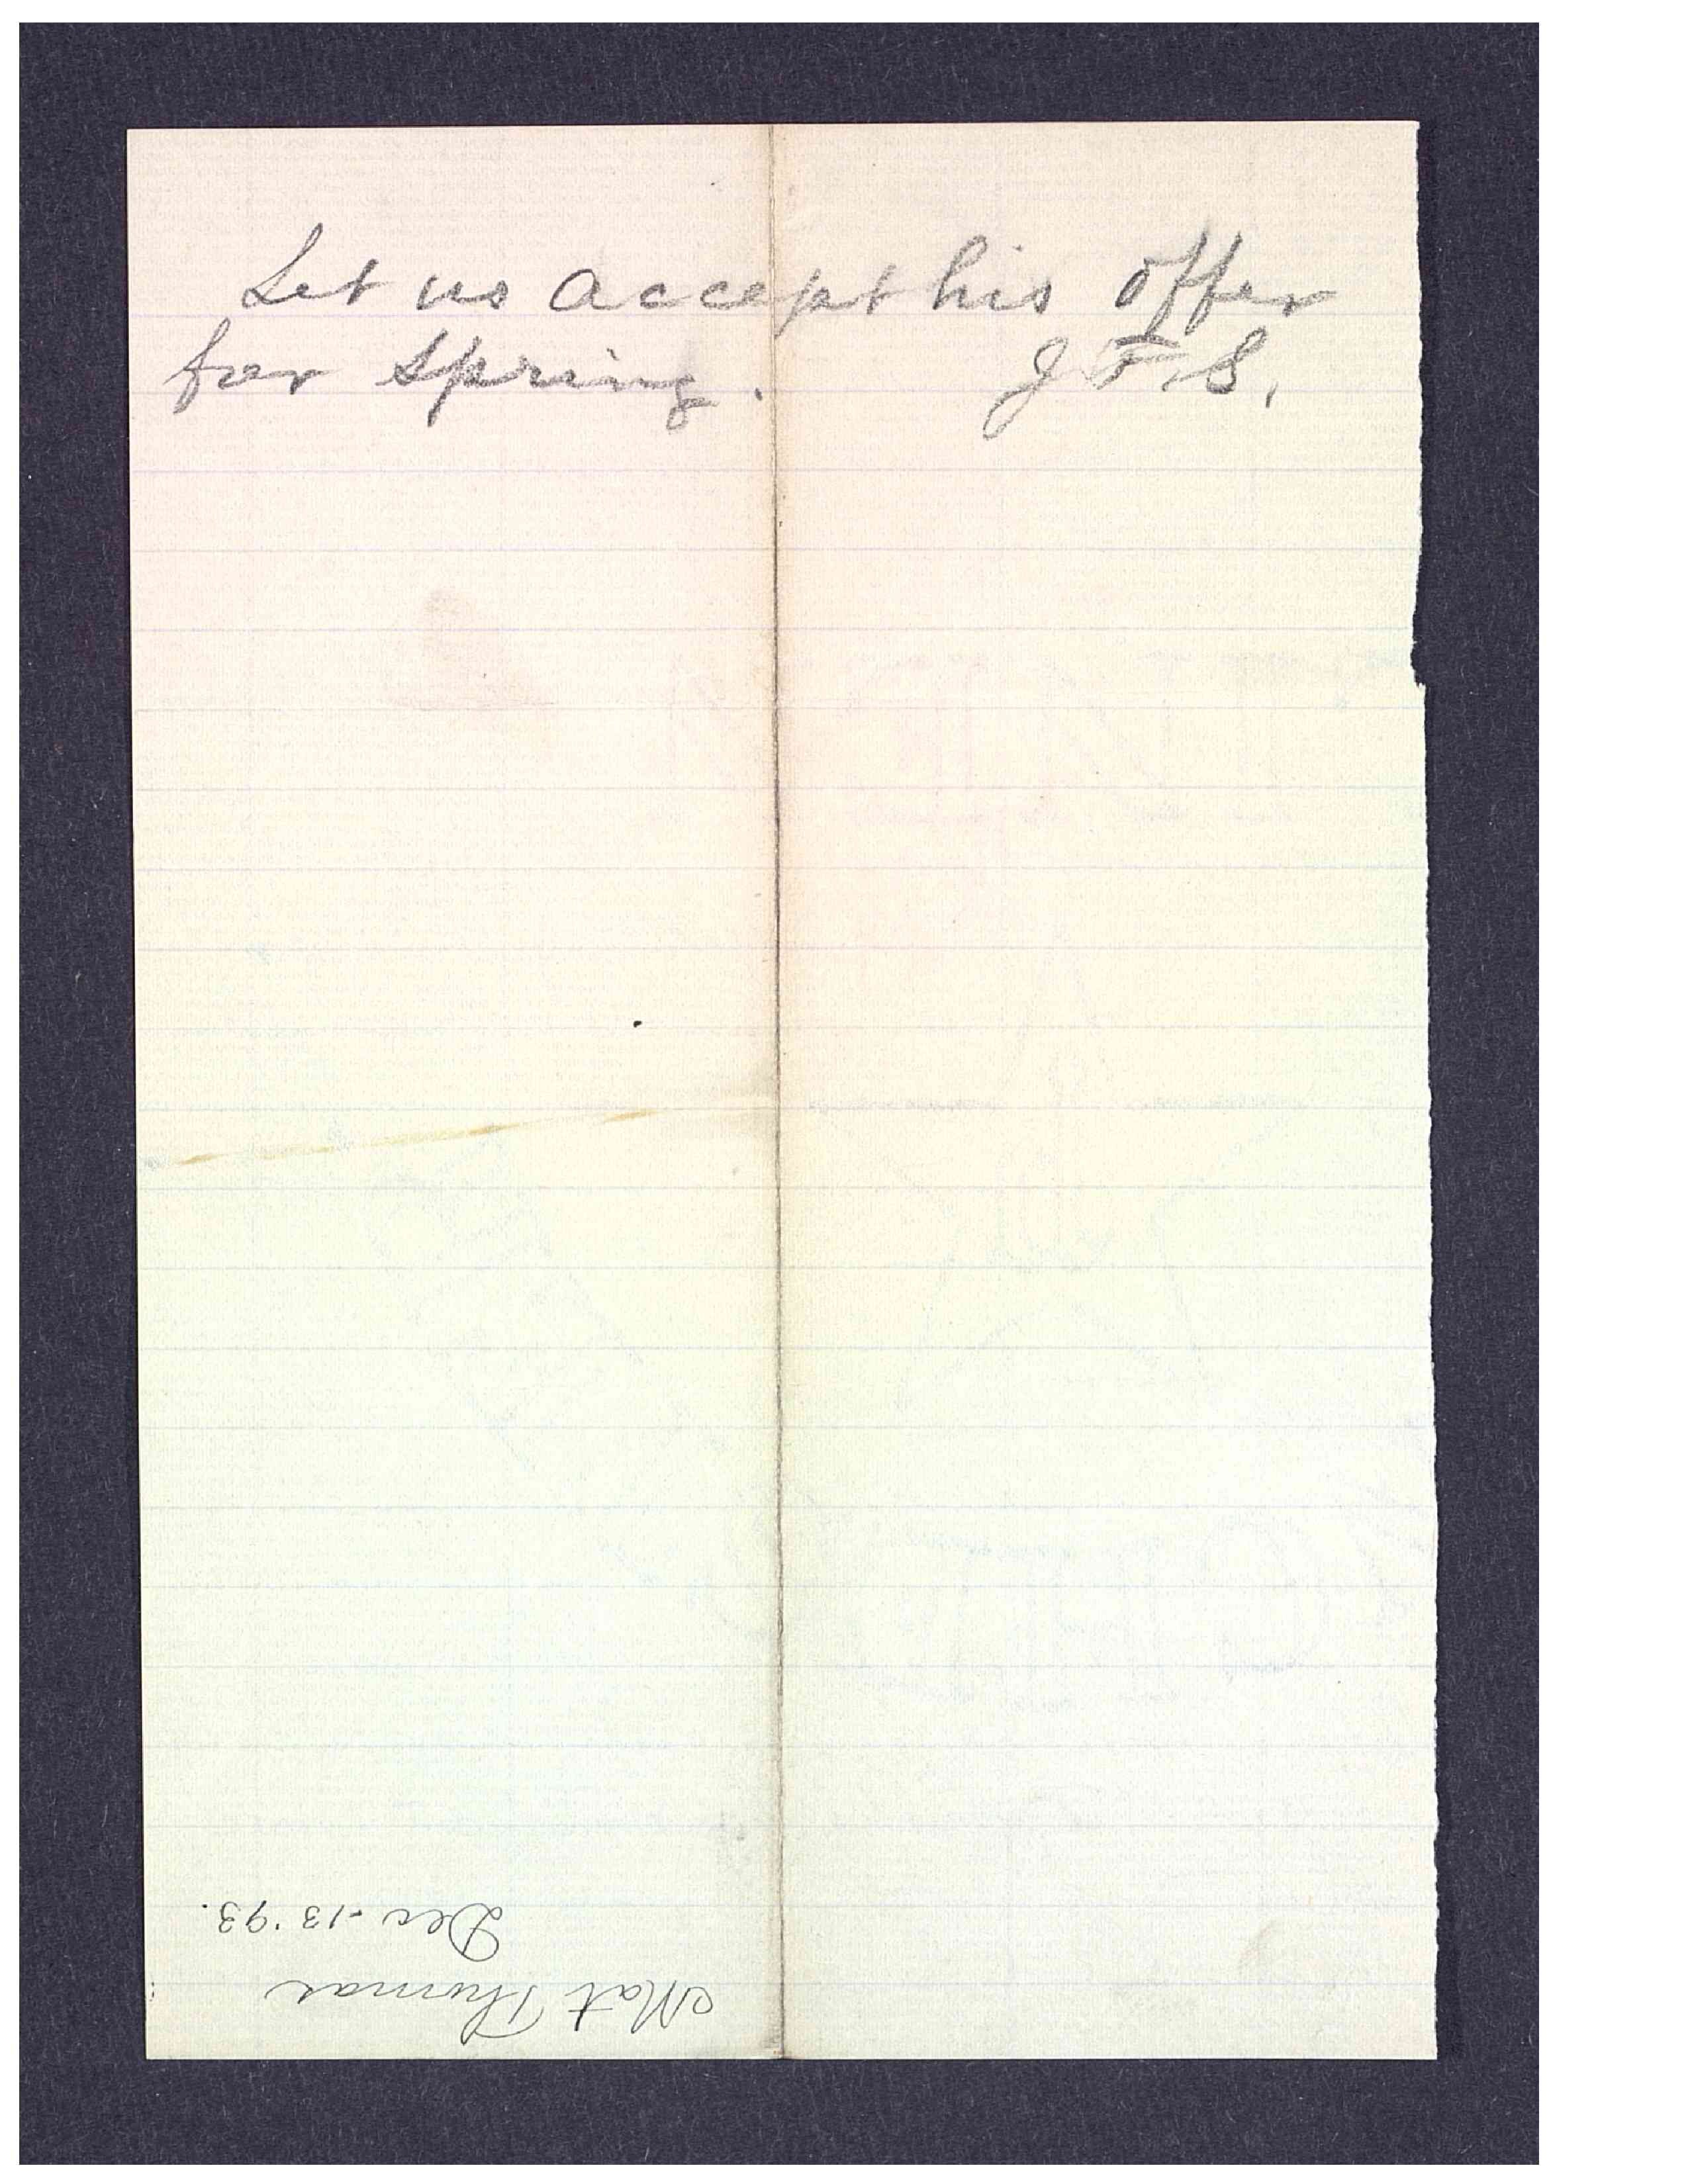 Let us accept his offer
for spring. J. F. S.
Mat Thomas
Dec - 13 '93.